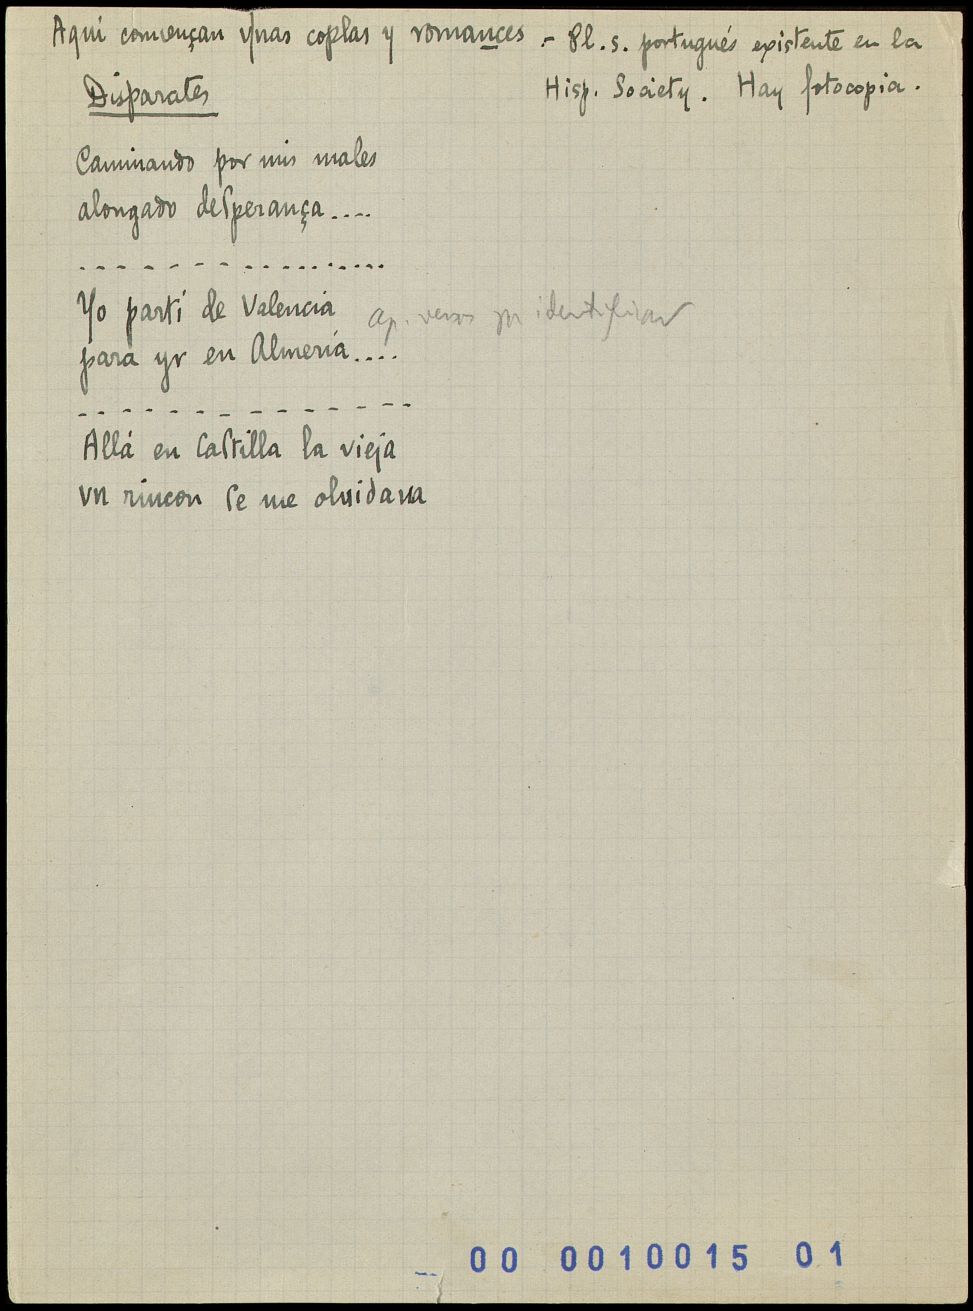 Aquí comiençan vnas coplas y romances .- Pl. s. portugués existente en la
Hisp. Society. Hay fotocopia.
Disparates
Caminando por mis males
alongado desperança....
- - - - - - - - - - - - - -
Yo partí de Valencia
ap. versos identificar
para yr en Almería....
- - - - - - - - - - - - - -
Allá en Castilla la vieja
vn rincon se me oluidaua
00 0010015 01